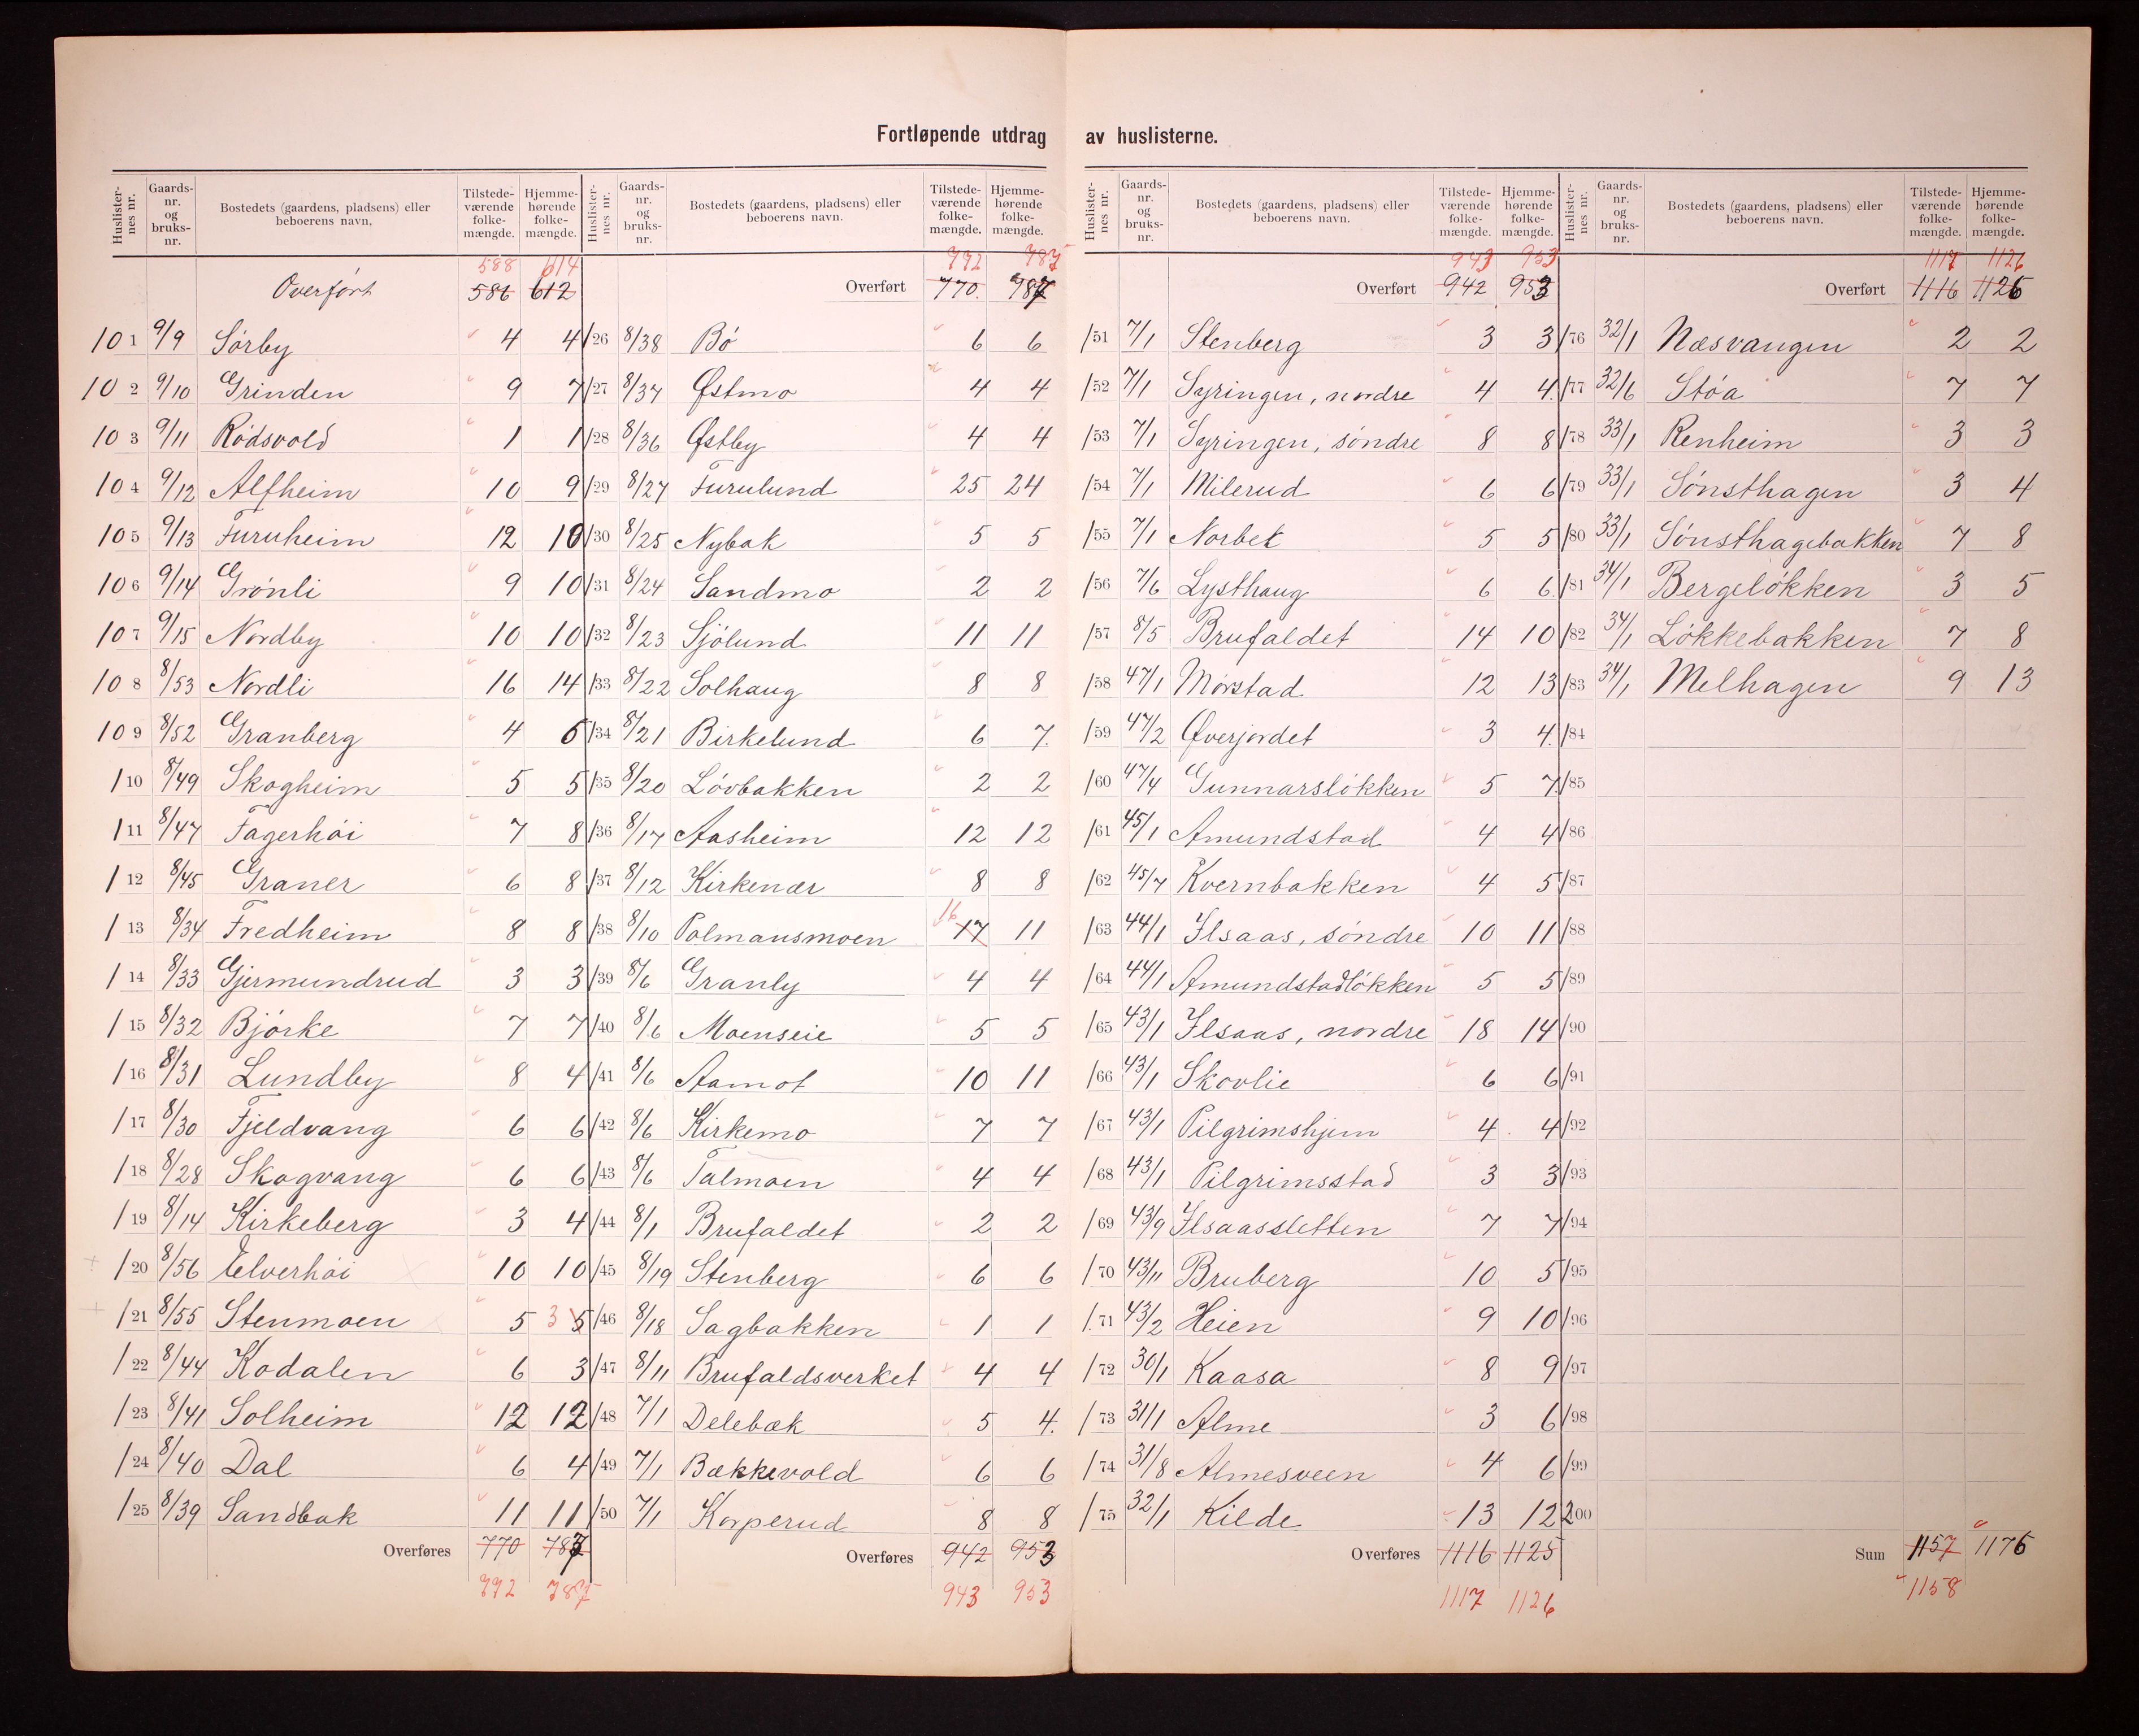 Fortløpende utdrag av huslisterne.
Huslister-nes nr. Gaards-nr. og bruks-nr. Bostedets (gaardens, pladsens) eller beboerens navn. Tilstede-værende folke-mængde. Hjemme-hørende folke-mængde.
588 614
Overført 586 612
101 9/9 Sørby 4 4
102 9/10 Grinden 9 7
103 9/11 Rødsvold 1 1
104 9/12 Alfheim 10 9
105 9/13 Furuheim 12 10
106 9/14 Grønli 9 10
107 9/15 Nordby 10 10
108 8/53 Nordli 16 14
109 8/52 Granberg 4 6
110 8/49 Skogheim 5 5
111 8/47 Fagerhøi 7 8
112 8/45 Graner 6 8
113 8/34 Fredheim 8 8
114 8/33 Gjermundrud 3 3
115 8/32 Bjørke 7 7
116 8/31 Lundby 8 4
117 8/30 Fjeldvang 6 6
118 8/28 Skogvang 6 6
119 8/14 Kirkeberg 3 4
120 8/56 Elverhøi 10 10
121 8/55 Stenmoen 5 3 5
122 8/44 Kodalen 6 3
123 8/41 Solheim 12 12
124 8/40 Dal 6 4
125 8/39 Sandbak 11 11
Overføres 770 787
772 787
Huslister-nes nr. Gaards-nr. og bruks-nr. Bostedets (gaardens, pladsens) eller beboerens navn. Tilstede-værende folke-mængde. Hjemme-hørende folke-mængde.
772 787
Overført 770 787
/26 8/38 Bø 6 6
/27 8/37 Østmo 4 4
/28 8/36 Østby 4 4
/29 8/27 Furulund 25 24
/30 8/25 Nybak 5 5
/31 8/24 Sandmo 2 2
/32 8/23 Sjølund 11 11
/33 8/22 Solhaug 8 8
/34 8/21 Birkelund 6 7
/35 8/20 Løvbakken 2 2
/36 8/17 Aasheim 12 12
/37 8/12 Kirkenær 8 8
/38 8/10 Polmansmoen 16 17 11
/39 8/6 Granly 4 4
/40 8/6 Moenseie 5 5
/41 8/6 Aamot 10 11
/42 8/6 Kirkemo 7 7
/43 8/6 Talmoen 4 4
/44 8/1 Brufaldet 2 2
/45 8/19 Stenberg 6 6
/46 8/18 Sagbakken 1 1
/47 8/11 Brufaldsverket 4 4
/48 7/1 Delebæk 5 4
/49 7/1 Bækkevold 6 6
/50 7/1 Korperud 8 8
Overføres 942 953
943 953
Huslister-nes nr. Gaards-nr. og bruks-nr. Bostedets (gaardens, pladsens) eller beboerens navn. Tilstede-værende folke-mængde. Hjemme-hørende folke-mængde.
943 953
Overført 942 953
/51 7/1 Stenberg 3 3
/52 7/1 Syringen, nordre 4 4
/53 7/1 Syringen, søndre 8 8
/54 7/1 Milerud 6 6
/55 7/1 Norbek 5 5
/56 7/6 Lysthaug 6 6
/57 8/5 Brufaldet 14 10
/58 47/1 Mørstad 12 13
/59 47/2 Øverjordet 3 4
/60 47/4 Gunnarsløkken 5 7
/61 45/1 Amundstad 4 4
/62 45/7 Kvernbakken 4 5
/63 44/1 Ilsaas, søndre 10 11
/64 44/1 Amundstadløkken 5 5
/65 43/1 Ilsaas, nordre 18 14
/66 43/1 Skovlie 6 6
/67 43/1 Pilgrimshjem 4 4
/68 43/1 Pilgrimsstad 3 3
/69 43/9 Ilsaassletten 7 7
/70 43/11 Bruberg 10 5
/71 43/2 Heien 9 10
/72 30/1 Kaasa 8 9
/73 31/1 Alme 3 6
/74 31/8 Almesveen 4 6
/75 32/1 Kilde 13 12
Overføres 1116 1125
1117 1126
Huslister-nes nr. Gaards-nr. og bruks-nr. Bostedets (gaardens, pladsens) eller beboerens navn. Tilstede-værende folke-mængde. Hjemme-hørende folke-mængde.
1117 1126
Overført 1116 1126
/76 32/1 Næsvangen 2 2
/77 32/6 Støa 7 7
/78 33/1 Renheim 3 3
/79 33/1 Sønsthagen 3 4
/80 33/1 Sønsthagebakken 7 8
/81 34/1 Bergeløkken 3 5
/82 34/1 Løkkebakken 7 8
/83 34/1 Melhagen 9 13
/84
/85
/86
/87
/88
/89
/90
/91
/92
/93
/94
/95
/96
/97
/98
/99
200
Sum 1157 1176
1158